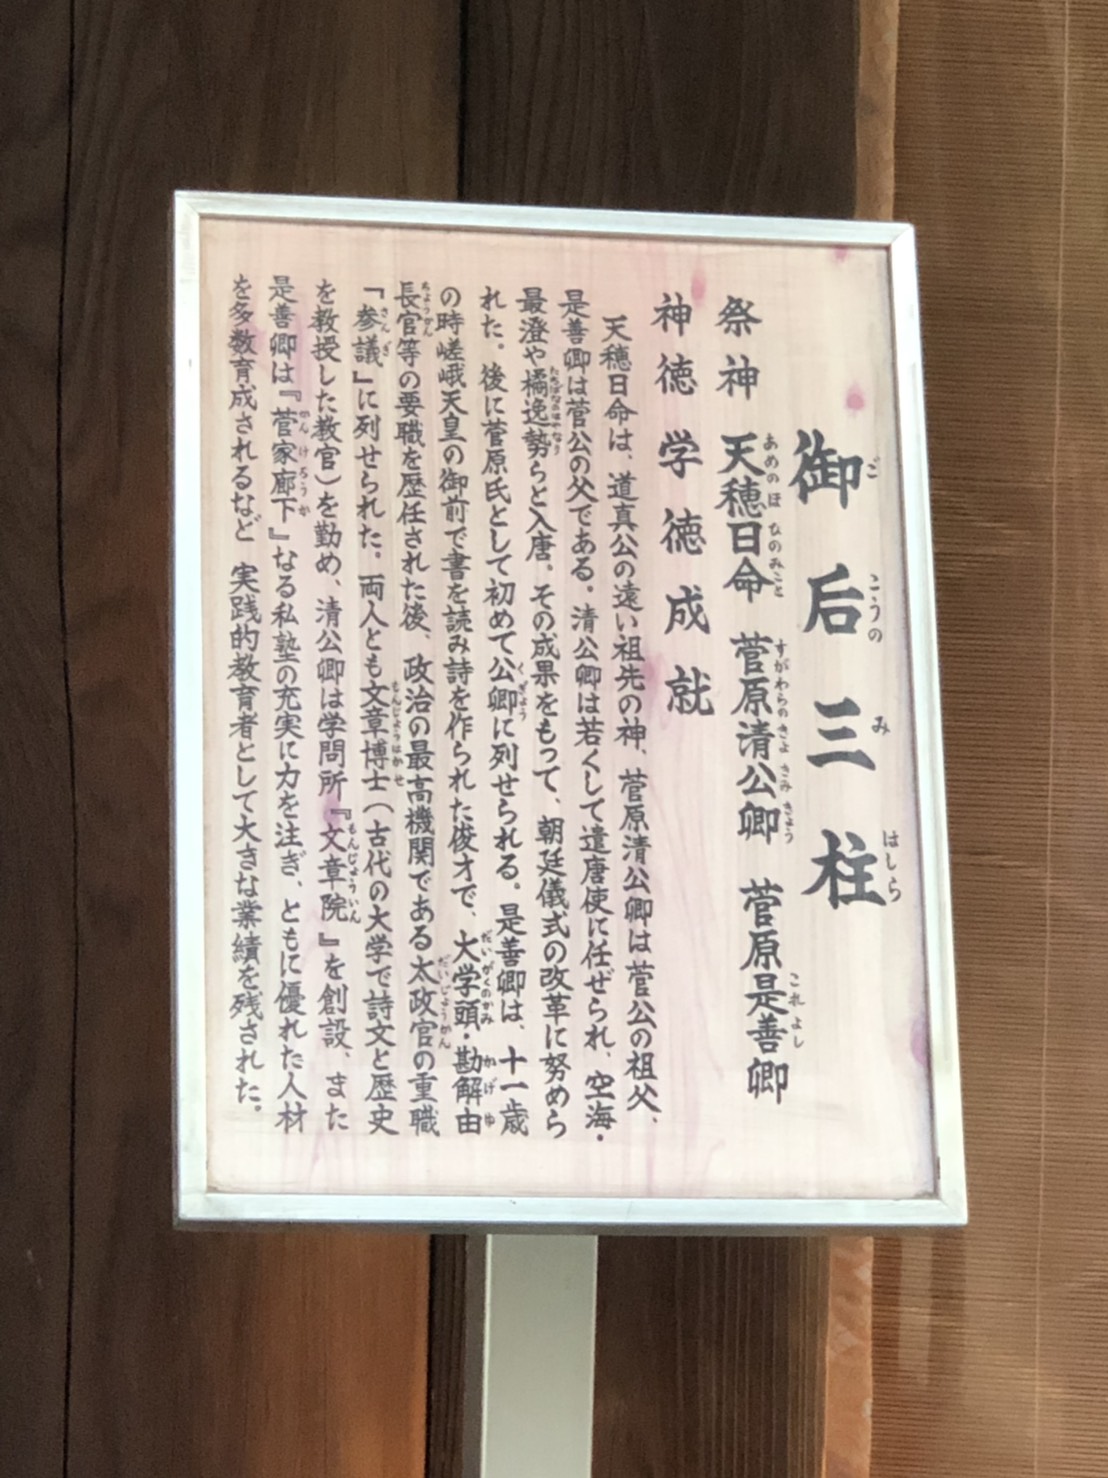 御后三柱
祭神 天穂日命 菅原清公卿 菅原是善卿
神徳 学徳成就
天穂日命は、道真公の遠い祖先の神、菅原清公卿は菅公の祖父、
是善卿は菅公の父である。清公卿は若くして遣唐使に任ぜられ、空海・
最澄や橘逸勢らと入唐。その成果をもって、朝廷儀式の改革に努めら
れた。後に菅原氏として初めて公卿に列せられる。是善卿は、十一歳
の時嵯峨天皇の御前で書を読み詩を作られた俊才で、大学頭・勘解由
長官等の要職を歴任された後、政治の最高機関である太政官の重職
「参議」に列せられた。両人とも文章博士(古代の大学で詩文と歴史
を教授した教官)を勤め、清公卿は学問所『文章院』を創設、また
是善卿は『菅家廊下』なる私塾の充実に力を注ぎ、ともに優れた人材
を多数育成されるなど 実践的教育者として大きな業績を残された。